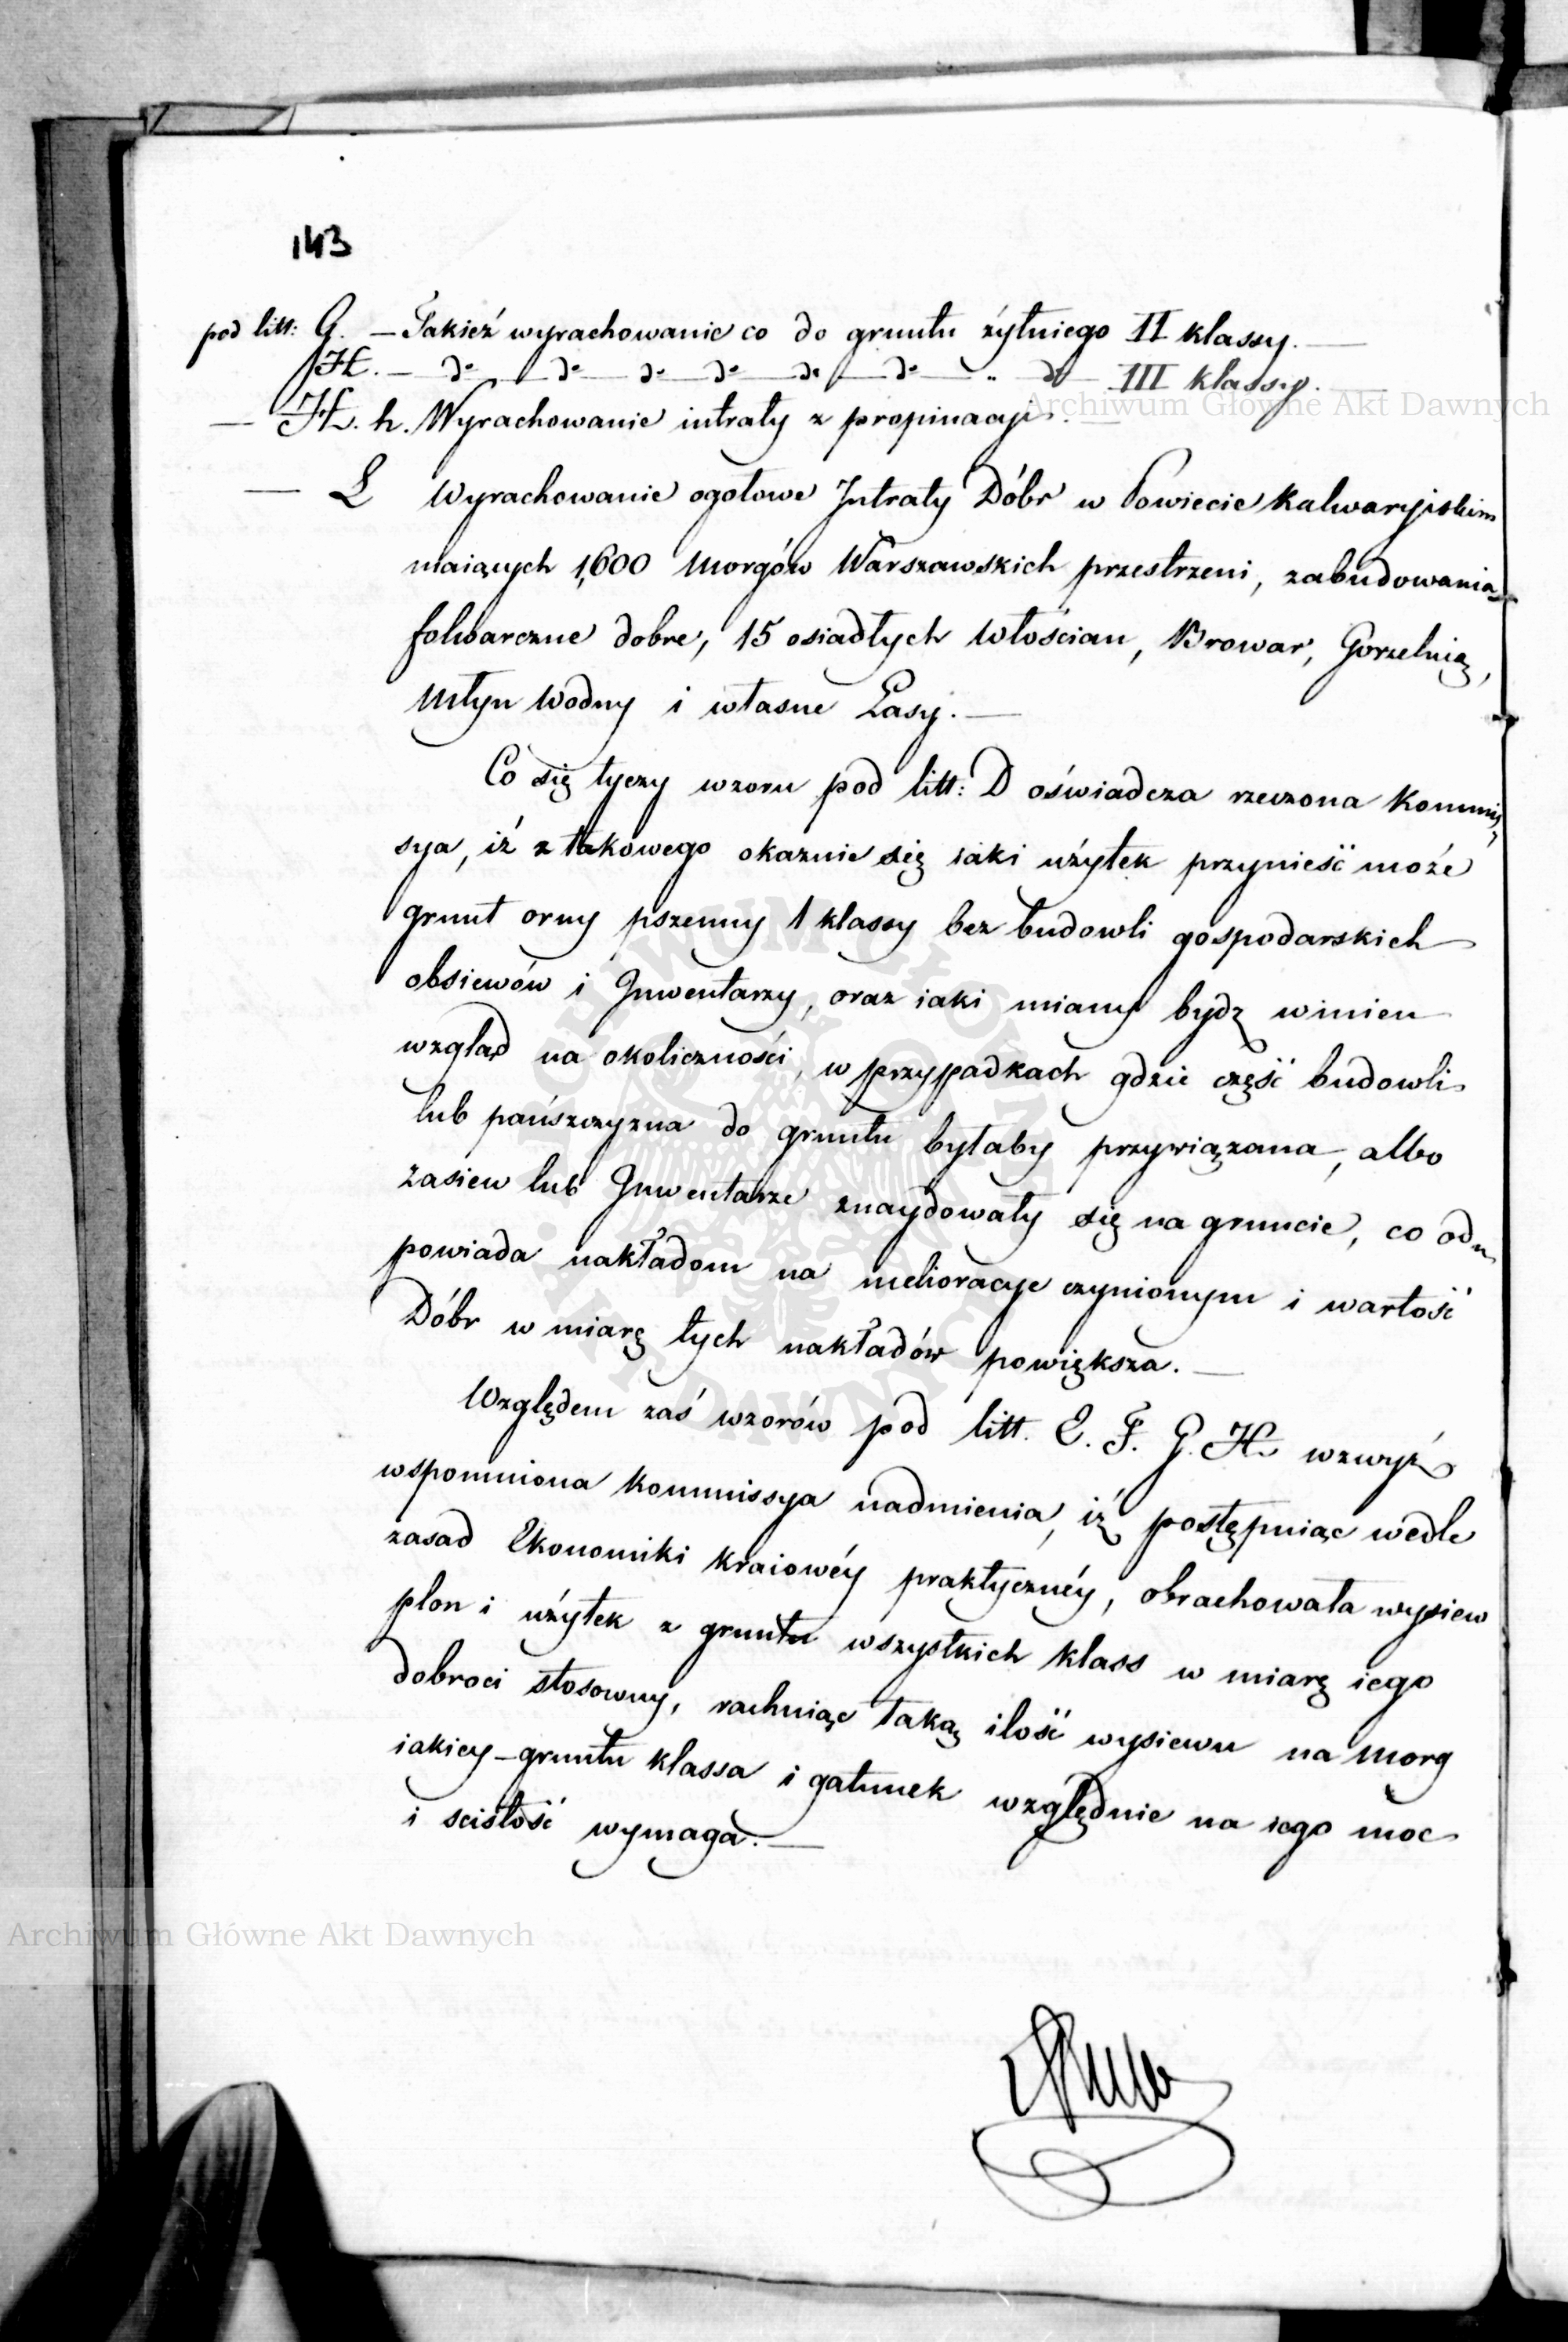 143
pod litt: G. — Takież wyrachowanie co do gruntu żytniego II klassy. —
H. — do — do — do — do — do — do — " do — III klassy. —
— H. h. Wyrachowanie intraty z propinacyi. —
— L Wyrachowanie ogołowe Intraty Dóbr w Powiecie Kalwaryiskim
maiących 1,600 Morgów Warszawskich przestrzeni, zabudowania
folwarczne dobre, 15 osiadłych Włościan, Browar, Gorzelnią,
Młyn Wodny i własne Lasy. —
Co się tyczy wzoru pod litt: D oświadcza rzeczona Kommis,
sya, iż z takowego okazuie się iaki użytek przynieść może
grunt orny pszenny 1 klassy bez budowli gospodarskich
obsiewów i Inwentarzy, oraz iaki miany bydz winien
wzgląd na okoliczności, w przypadkach gdzie część budowli
lub pańszczyzna do gruntu byłaby przywiązana, albo
zasiew lub Inwentarze znaydowały się na gruncie, co od„
powiada nakładom na melioracye czynionym i wartość
Dóbr w miarę tych nakładów powiększa. —
Względem zaś wzorów pod litt. E. F. G. H wzwyż
wspomniona Kommissya nadmienia, iż postępuiąc wedle
zasad Ekonomiki kraiowéy praktycznéy, obrachowała wysiew
plon i użytek z gruntu wszystkich klass w miarę iego
dobroci stosowny, rachuiąc taką ilość wysiewu na Morg
iakiey gruntu klassa i gatunek względnie na iego moc
i scisłość wymaga. —
Archiwum Główne Akt Dawnych
Archiwum Główne Akt Dawnych
ARCHIWUM GŁÓWNE AKT DAWNYCH